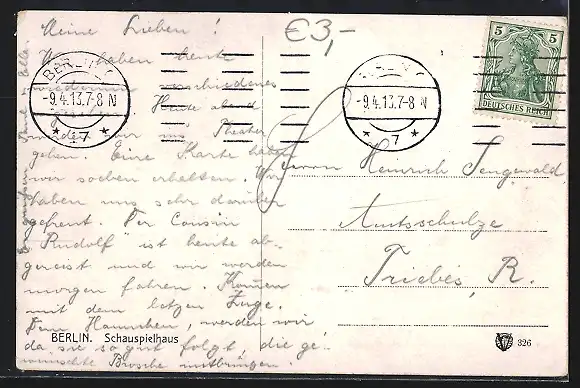 Meine Lieben!
Wir haben heute
wiederum verschiedenes
Heute abend
wir ins Theater
gehen. Eine Karte haben
wir soeben erhalten. Wir
haben uns sehr darüber
gefreut. Der Cousin
Rudolf ist heute ab-
gereist und wir werden
morgen fahren. Kommen
mit dem letzen Zuge.
Dem Hannchen, werden wir
da sie so gut folgt die ge-
wünschte Brosche mitbringen.
BERLIN. Schauspielhaus
€3,-
BERLIN
-9.4.13.7-8 N
* 7 *
-9.4.13.7-8 N
* 7 *
5 5
DEUTSCHES REICH
Herrn Heinrich
Amtsschulze
Triebes, R.
326